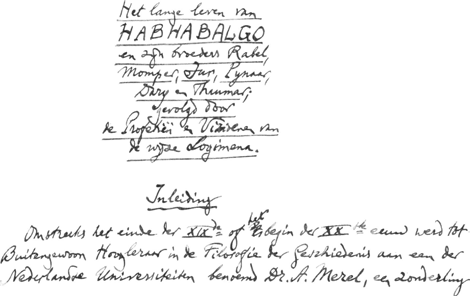 Het lange leven van
HABHABALGO
en zijn broeders Rabel,
Momper, Jur, Pynaar,
Dary en Thuumar;
gevolgd door
de Profetieën en Visioenen van
de wijze Logomena.
Inleiding
Omstreeks het einde der XIXde of het begin der XXste eeuw werd tot
Buitengewoon Hoogleraar in de Filosofie der Geschiedenis aan een der
Nederlandse Universiteiten benoemd Dr. A. Merel, een zonderling